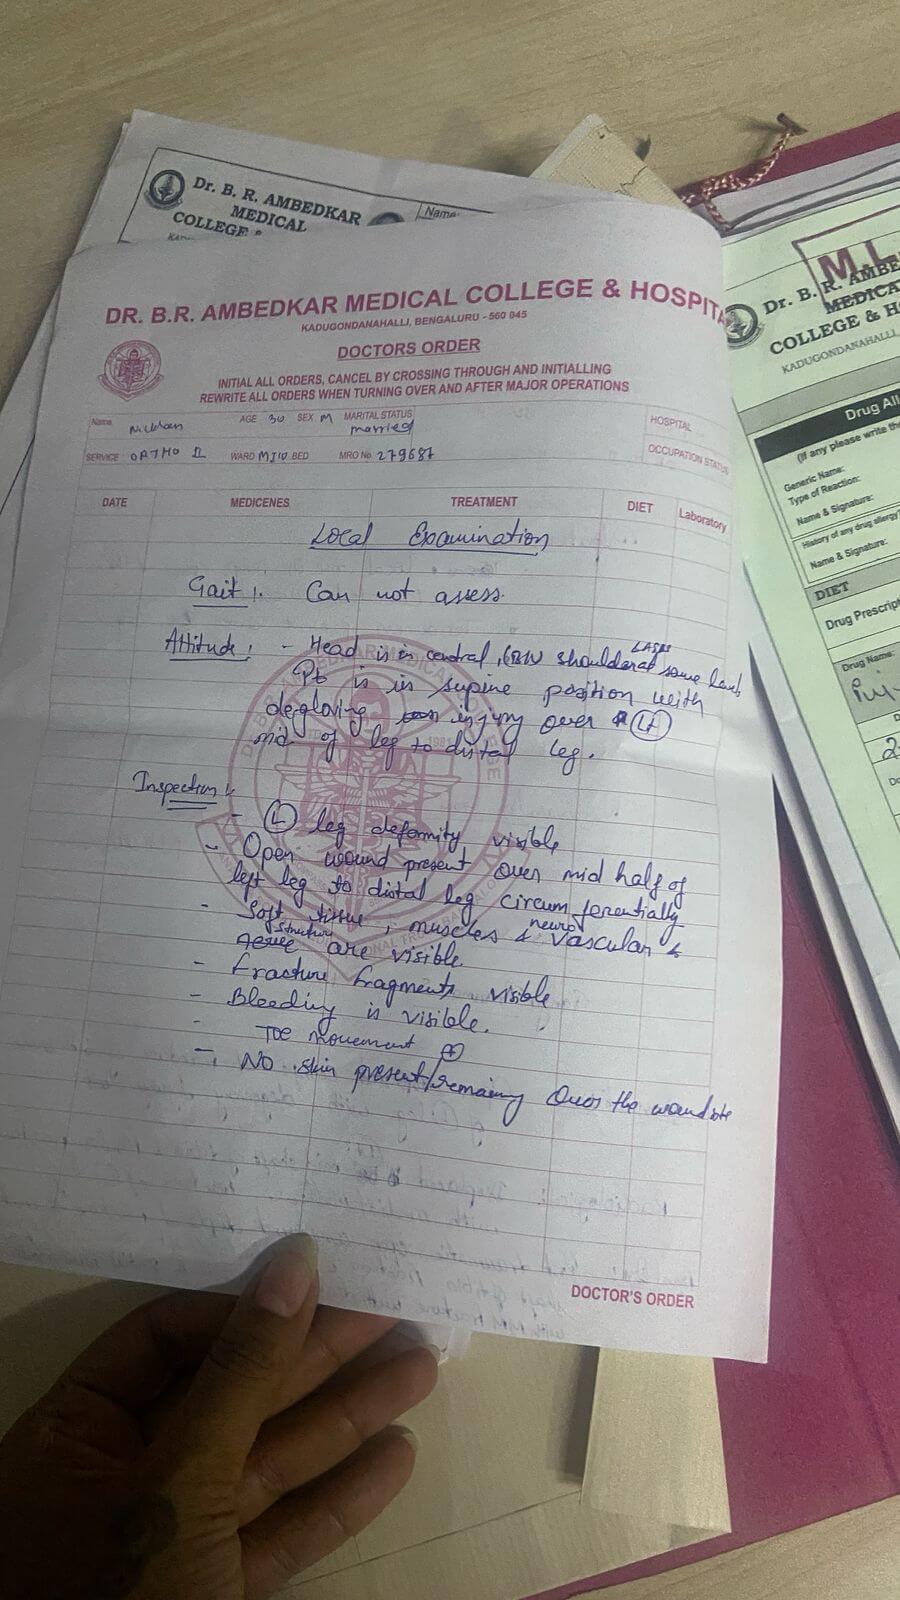 Dr. B. R. AMBEDKAR
MEDICAL
COLLEGE &
Name:
DR. B.R. AMBEDKAR MEDICAL COLLEGE & HOSPITA
KADUGONDANAHALLI, BENGALURU - 560 045
DOCTORS ORDER
INITIAL ALL ORDERS, CANCEL BY CROSSING THROUGH AND INITIALLING
REWRITE ALL ORDERS WHEN TURNING OVER AND AFTER MAJOR OPERATIONS
Name AGE 30 SEX M MARITAL STATUS married HOSPITAL
SERVICE ORTHO II WARD BED MRO No. 279687 OCCUPATION STATUS
DATE MEDICENES TREATMENT DIET Laboratory
Local Examination
Gait :- Can not assess.
Attitude :- Head is in central, shoulder at same level
Pt is in supine position with
degloving injury over (Lt)
mid of leg to distal leg.
Inspection :-
- (L) leg deformity visible
- Open wound present over mid half of
left leg to distal leg circumferentially
- Soft tissue, muscles & neuro vascular
structure are visible.
- Fracture fragments visible
- Bleeding is visible.
- Toe movement (+)
- NO skin present/remaining over the wound site
DOCTOR'S ORDER
M.L
Dr. B. R. AMBE
MEDICA
COLLEGE & H
KADUGONDANAHALLI,
Drug All
(If any please write the
Generic Name:
Type of Reaction:
Name & Signature:
History of any drug allergy?
Name & Signature:
DIET
Drug Prescript
Drug Name: